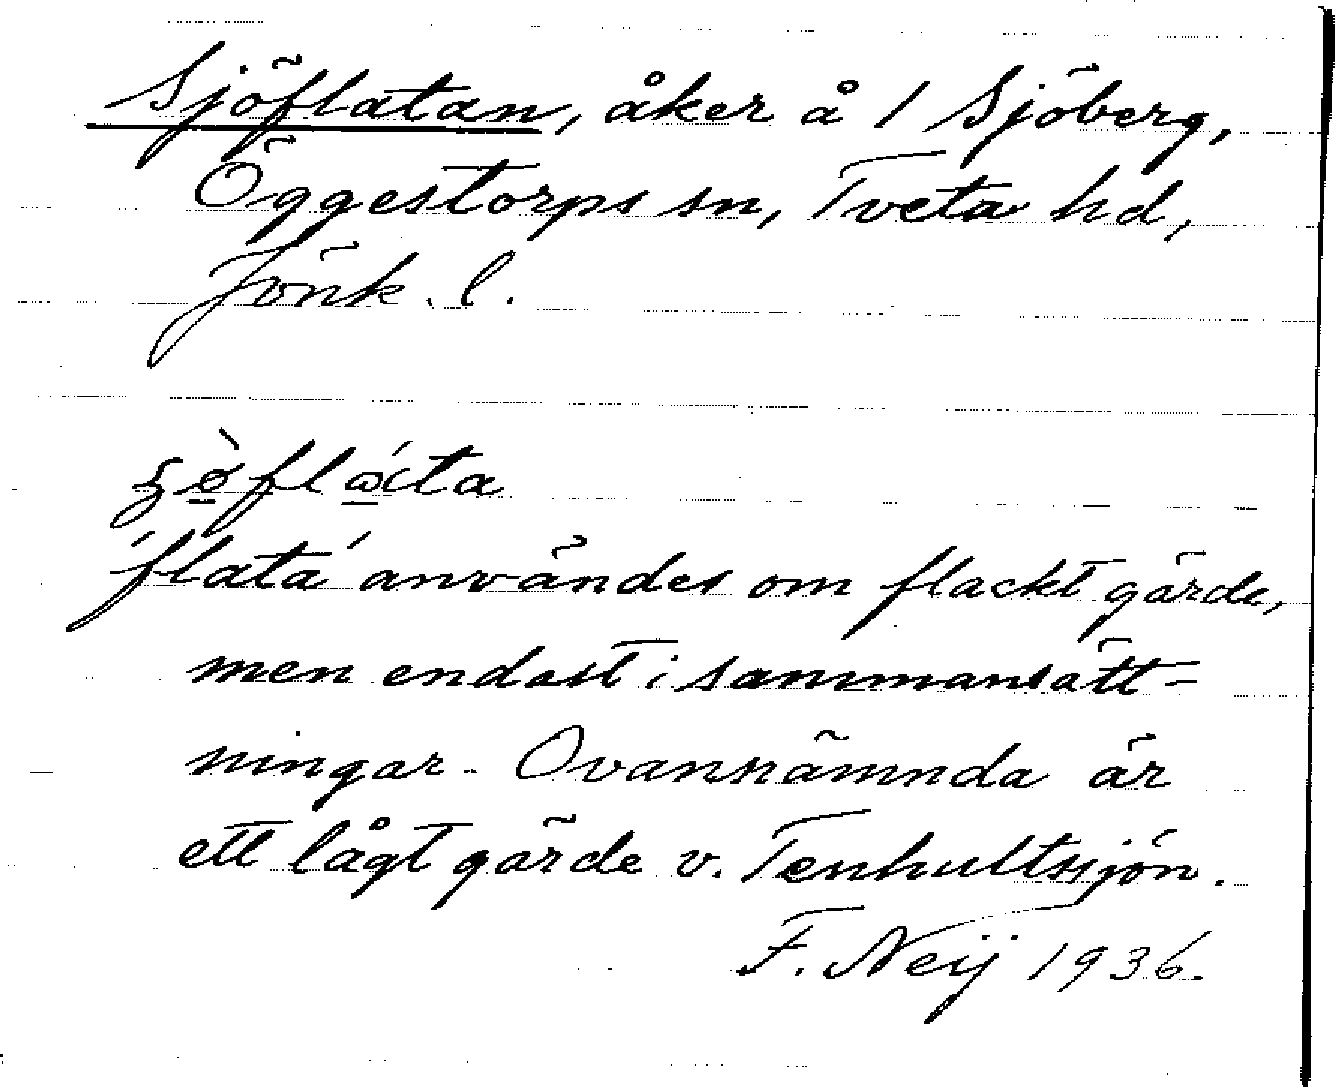 Sjöflatan, åker å 1 Sjöberg,
Öggestorps sn, Tveta hd,
Jönk. l.
'flata' användes om flackt gärde,
men endast i sammansätt-
ningar. Ovannämnda är
ett lågt gärde v. Tenhultsjön.
F. Neij 1936.